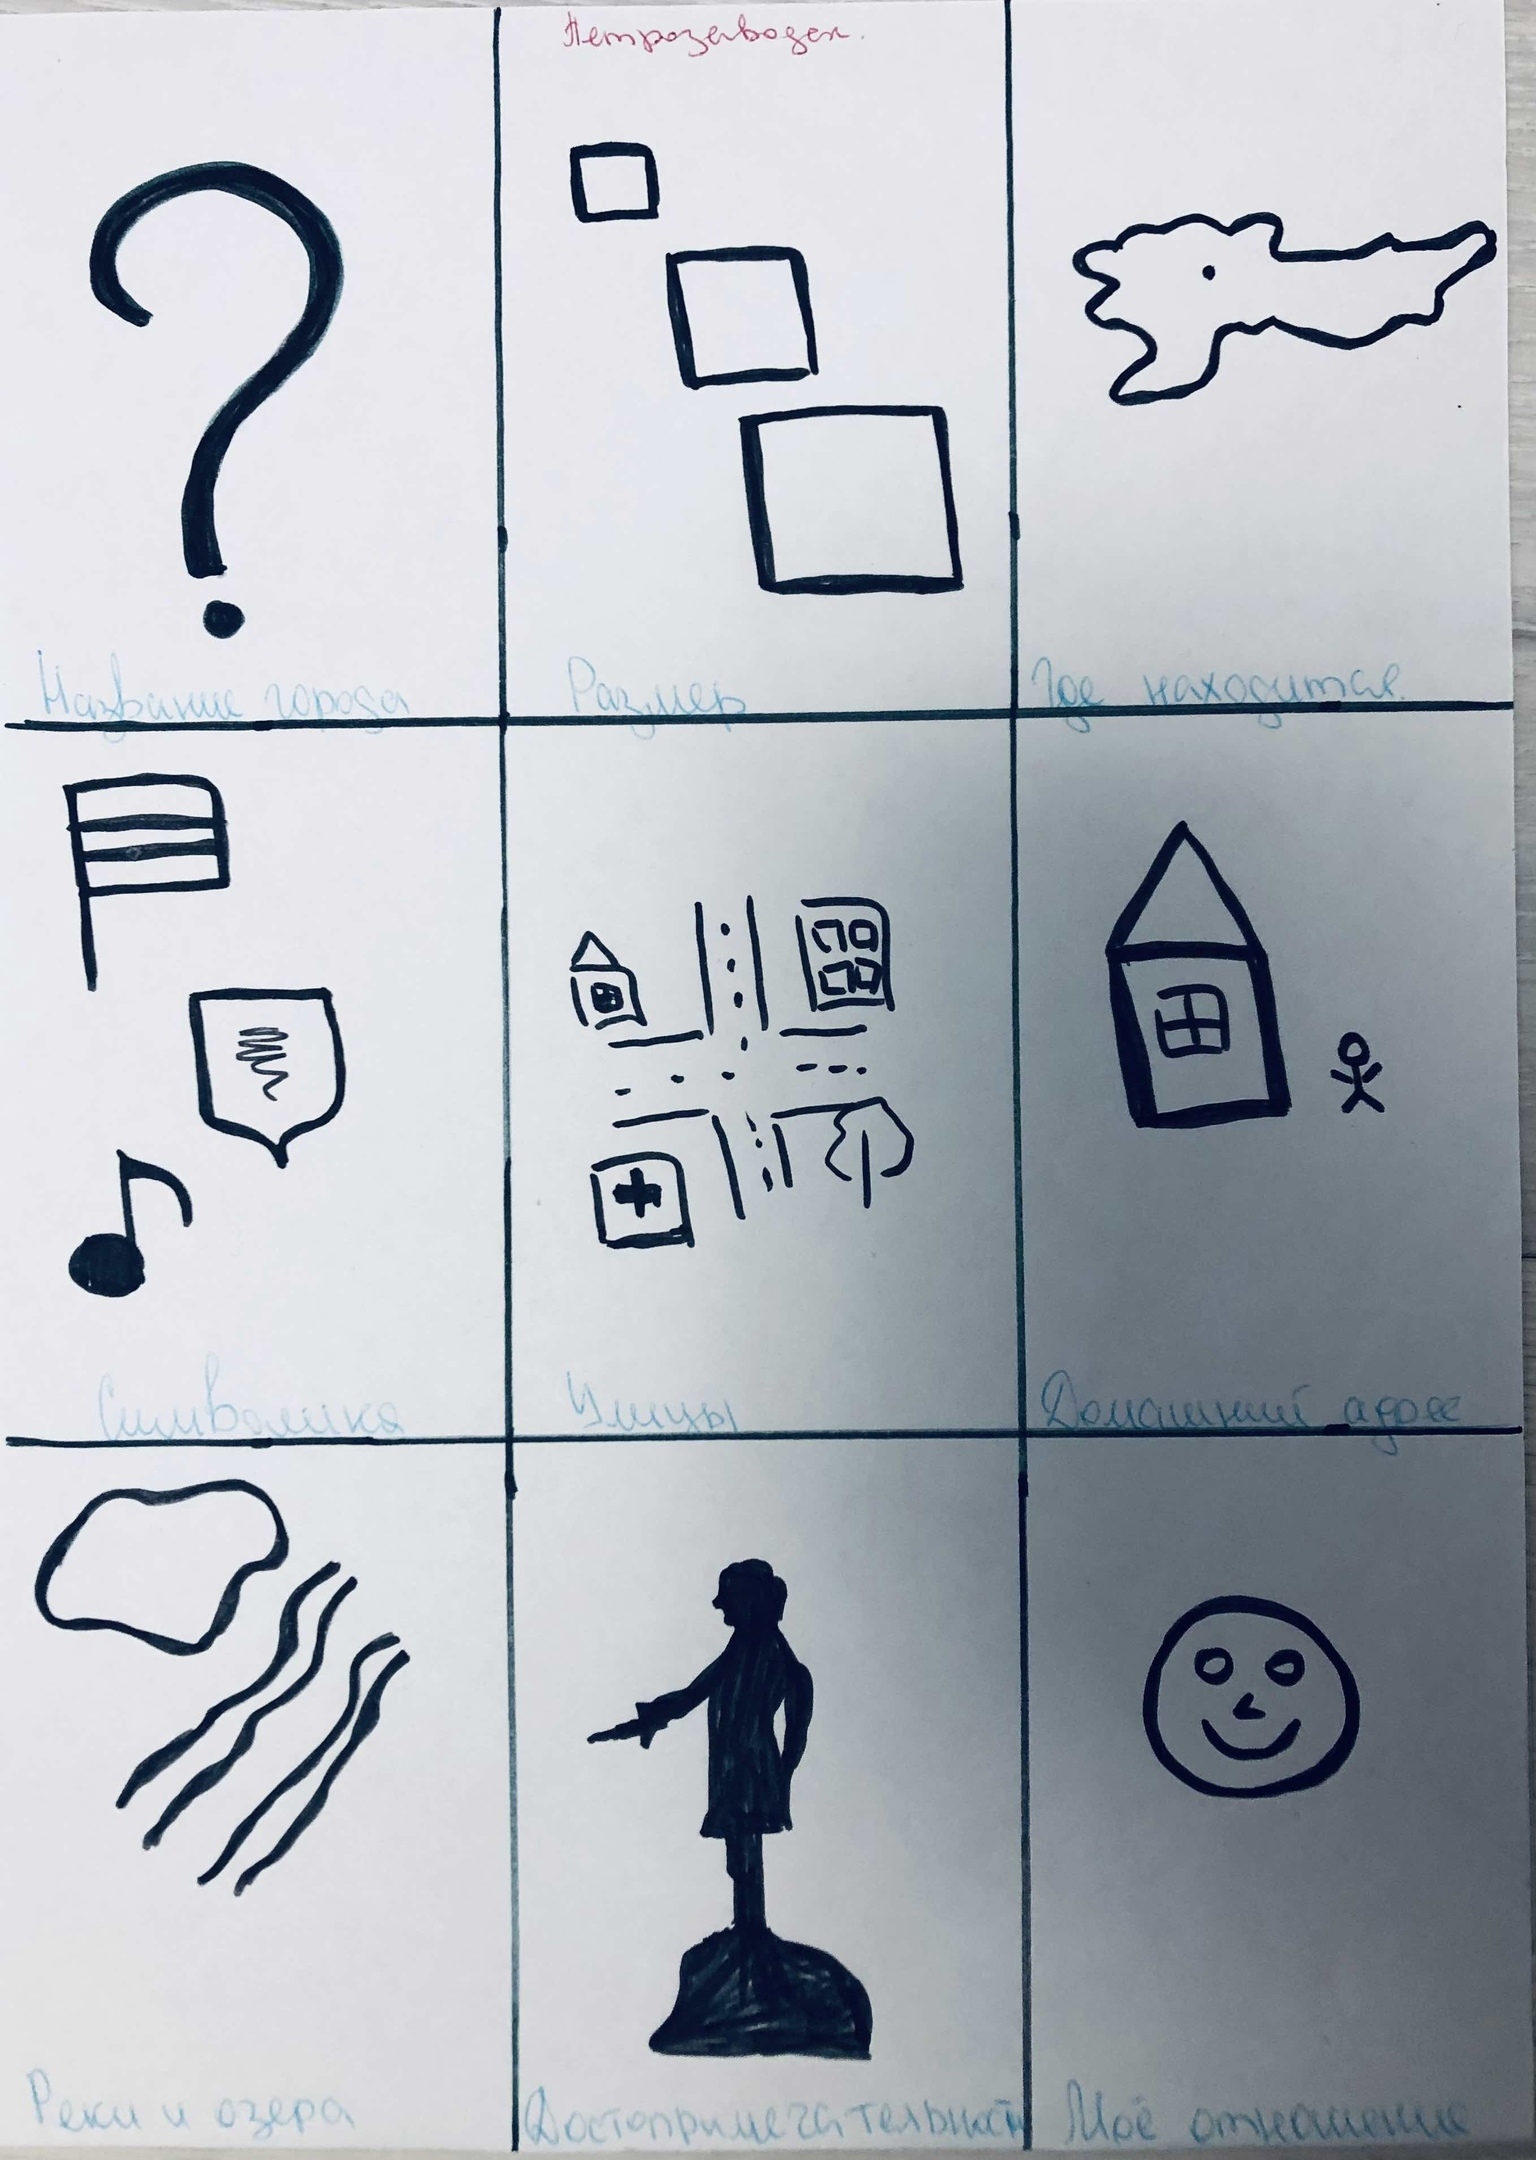 Петрозаводск.
Название города
Размер
Где находится.
Символика
Улицы
Домашний адрес
Реки и озера
Достопримечательности
Моё отношение